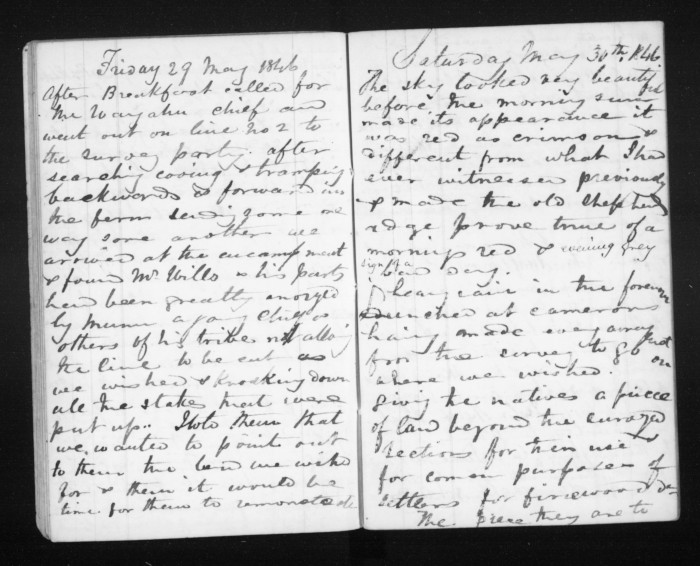 Friday 29 May 1846
After Breakfast called for
the Wayahu chief and
went out on line no 2 to
the survey party. after
searching cooing & tramping
backwords & forward in
the fern seeing some one
way some another we
arrived at the encampment
& found Mr Wills & his party
had been greatly annoyed
by a young Chief &
others of his tribe not allowing
the line to be cut as
we wished & knocking down
all the stakes that were
put up.. I told them that
we wanted to point out
to them the land we wished
for & then it would be
time for them to remonstrate
Saturday May 30th 1846
The sky looked very beautiful
before the morning sun
made its appearance it
was red as crimson &
different from what I had
ever witnessed previously
& made the old shepherds
adge prove true of a
morning red & evening grey
sign of a
day.
heavy rain in the forenoon
lunched at camerons
having made every arrangement
for the survey to go on
where we wished.
giving the natives a piece
of land beyond the surveyed
sections for their use &
for comon purposes of
settlers for firewood &c
The piece they are to